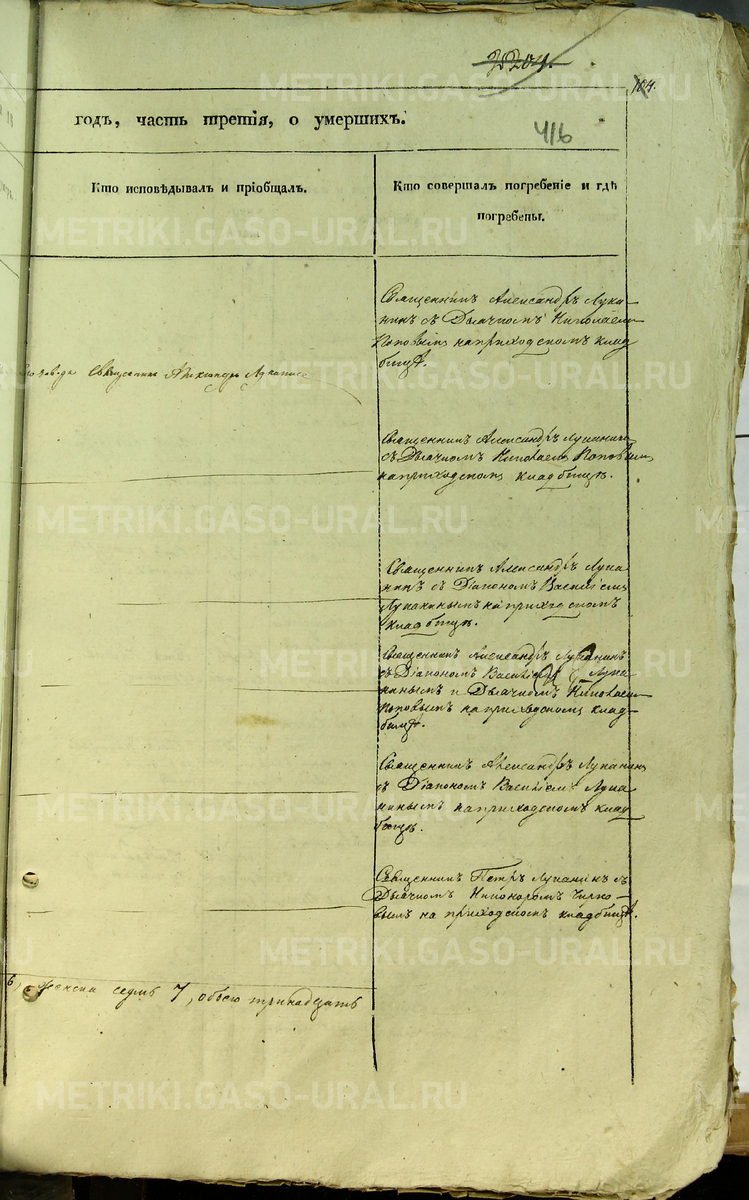 104.
416
годъ, часть третія, о умершихъ.
Кто исповѣдывалъ и пріобщалъ.
Кто совершалъ погребеніе и гдѣ
погребены.
Священникъ Александръ Лука-
нинъ съ Дьячкомъ Николаем
Поповымъ на приходскомъ клад
бищѣ.
Священникъ Александръ Луканинъ
Священникъ Александръ Луканинъ
съ Дьячкомъ Николаемъ Поповым
на приходскомъ кладбищѣ.
Священникъ Александръ Лука
нинъ съ Діакономъ Василіемъ
Луканинымъ на приходскомъ
кладбищѣ.
Священникъ Александръ Луканинъ
съ Діакономъ Василіемъ Лука
нинымъ и Дьячкомъ Николаем
Поповымъ на приходскомъ клад-
бищѣ.
Священникъ Александръ Луканинъ
съ Діакономъ Василіемъ Лука
нинымъ на приходскомъ клад
бищѣ.
Священникъ Петръ Луканинъ съ
Дьячкомъ Никаноромъ Чирко-
вымъ на приходскомъ кладбищѣ.
6, женска седмь 7, обоего тринадцать
METRIKI.GASO-URAL.RU